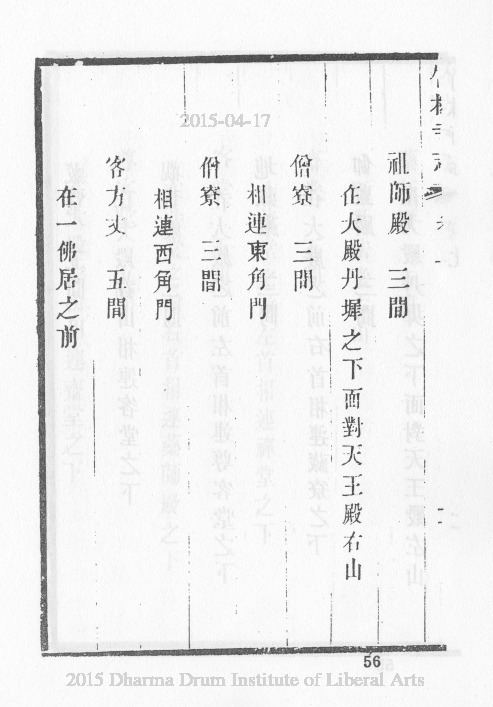 2015-04-17
祖師殿　三間
在大殿丹墀之下面對天王殿右山
僧寮　三間
相連東角門
僧寮　三間
相連西角門
客方丈　五間
在一佛居之前
56
2015 Dharma Drum Institute of Liberal Arts